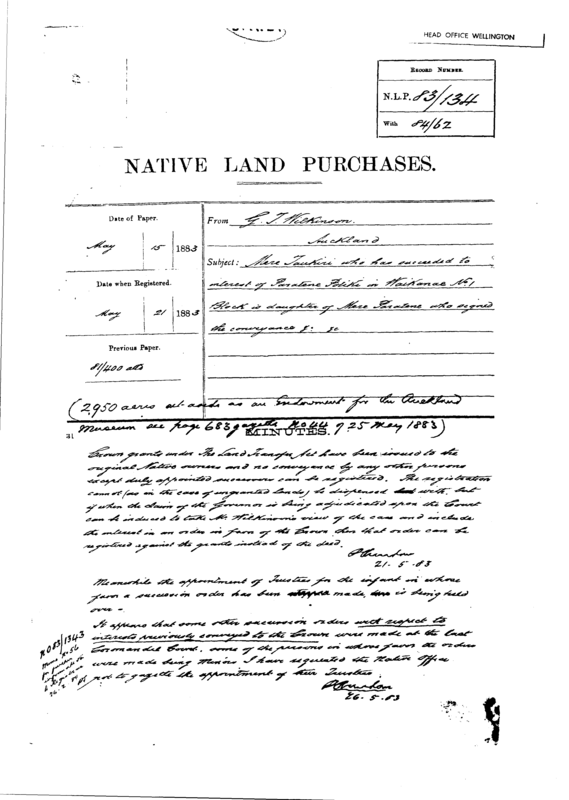 HEAD OFFICE WELLINGTON
RECORD NUMBER.
N.L.P. 83/134
With 84/62
NATIVE LAND PURCHASES.
Date of Paper.
May 15 1883
Date when Registered.
May 21 1883
Previous Paper.
81/400 atts
From G. T. Wilkinson.
Auckland
Subject: Mere Taukiri who has succeeded to
interest of Paratene Potiki in Waikanae No 1
Block is daughter of Mere Paratene who signed
the conveyance &c &c
(2,950 acres set aside as an Endowment for the Auckland
Museum see page 683 gazette No 44 of 25 May 1883)
MINUTES.
Crown grants under The Land Transfer Act have been issued to the
original Native owners and no conveyance by any other persons
except duly appointed successors can be registered. The registration
cannot (as in the case of ungranted lands) be dispensed with, but
if when the claim of the Governor is being adjudicated upon the Court
can be induced to take Mr Wilkinson's view of the case and include
the interest in an order in favor of the Crown then that order can be
registered against the grants instead of the deed.
21-5-83
Meanwhile the appointment of Trustees for the infant in whose
favor a succession order has been made, is being held
over -
It appears that some other succession orders with respect to
interests previously conveyed to the Crown were made at the last
Coromandel Court, some of the persons in whose favor the orders
were made being Minors I have requested the Native Office
not to gazette the appointment of their Trustees
26-5-83
83/1343